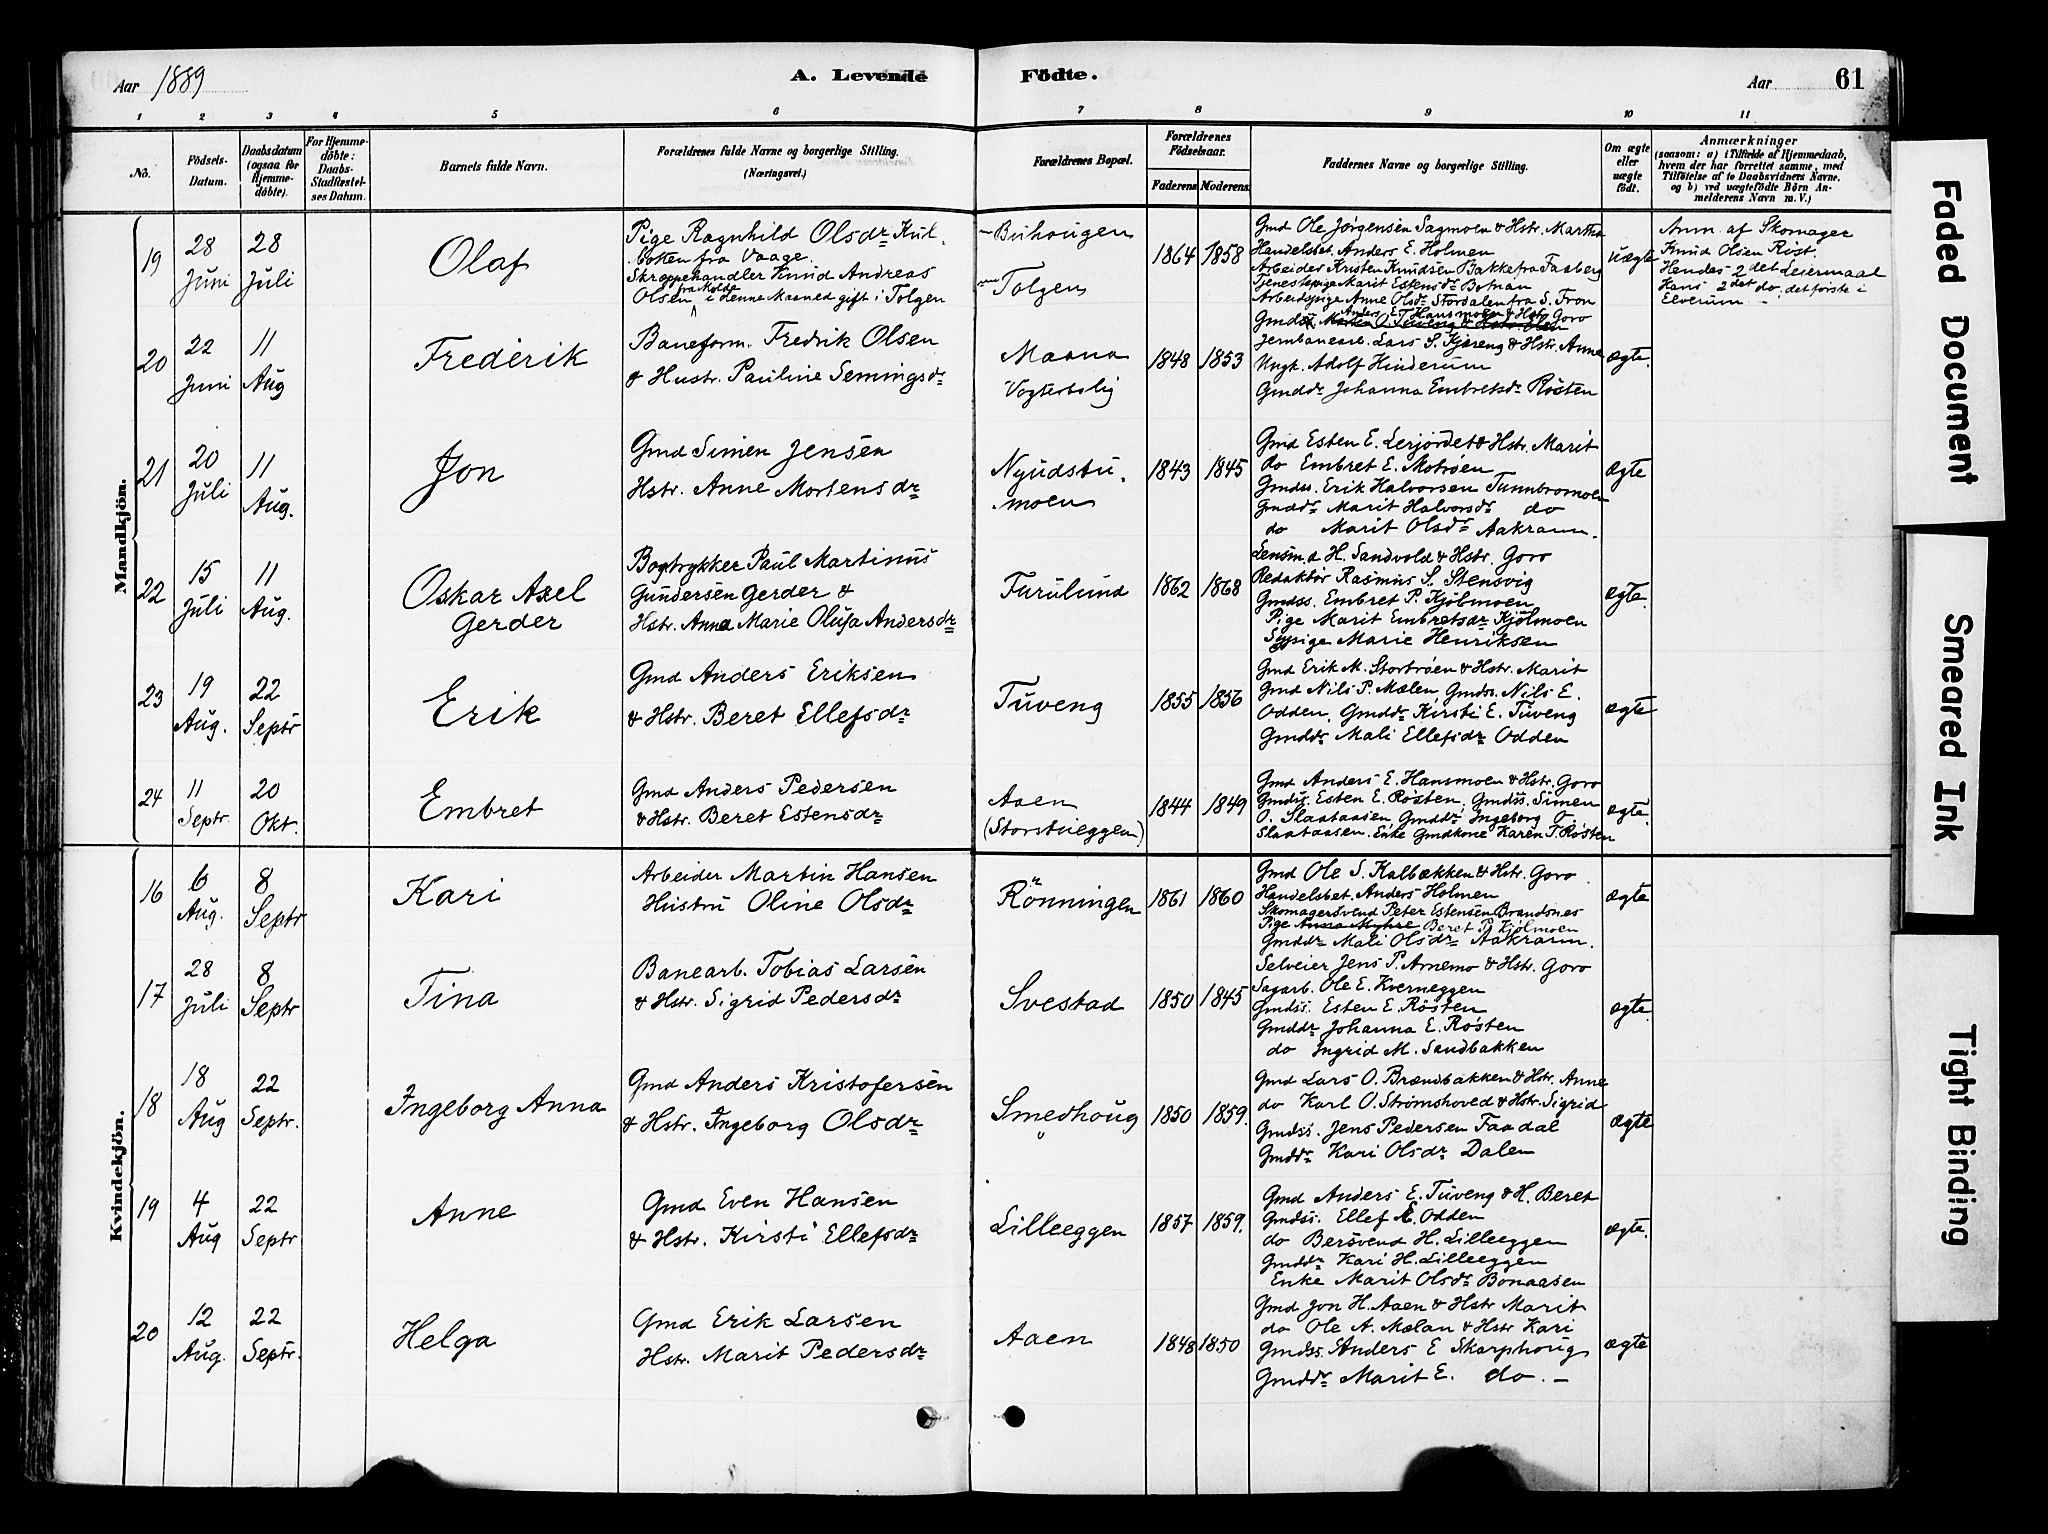 Aar 1889
A. Levende
Födte.
Aar
61
1 2 3 4 5 6 7 8 9 10 11
No.
Födsels-Datum.
Daabsdatum (ogsaa for Hjemme-döbte).
For Hjemme-döbte: Daabs-Stadfæstel-ses Datum.
Barnets fulde Navn.
Forældrenes fulde Navne og borgerlige Stilling.
(Næringsvei.)
Forældrenes Bopæl.
Forældrenes Födselsaar.
Faderens Moderens
Faddernes Navne og borgerlige Stilling.
Om ægte eller uægte födt.
Anmærkninger
(saasom: a) i Tilfælde af Hjemmedaab,
hvem der har forrettet samme, med
Tilföielse af to Daabsvidners Navne,
og b) ved uægtefödte Börn An-
melderens Navn m. V.)
Mandkjön.
19
28 Juni
28 Juli
Olaf
Pige Ragnhild Olsdr Kul-
botten fra Vaage.
Skreppehandler Knud Andreas
Olsen fra Molde i denne Maaned gift i Tolgen
Buhougen
Tolgen
1864 1858
Gmd Ole Jörgensen Sagmoen & Hstr. Martha
Handelsbet. Anders E. Holmen
Arbeider Kristen Knudsen Bakke fra Faaberg
Tjenestepige Marit Estensdr Botnan
Arbeidspige Anne Olsdr Stordalen fra S. Fron
uægte
Ann. af Skomager
Knud Olsen Röst.
Hendes 2det Leiermaal
Hans 2det do; det förste i
Elverum
20
22 Juni
11 Aug
Frederik
Baneform. Fredrik Olsen
& Hustr. Pauline Semingsdr
Maana
Vogterbolig
1848 1853
Gmd Anders E. Hansmoen & Hstr Goro
Jernbanearb. Lars S. Kjæreng & Hstr. Anna
Ungk. Adolf Hinderum
Gmddr Johanna Embretsdr Rösten
ægte.
21
20 Juli
11 Aug.
Jon
Gmd Simen Jensen
Hstr. Anne Mortensdr
Nyudstu-
moen
1843 1845
Gmd Esten E. Lerjordet & Hstr. Marit
do Embret E. Moröen
Gmdss. Erik Halvorsen Tunnbromoen
Gmddr Marit Halvorsdr do
do Marit Olsdr Aakrann.
ægte
22
15 Juli
11 Aug.
Oskar Axel
Gerder
Bogtrykker Paul Martinus
Gundersen Gerder &
Hstr. Anna Marie Olufa Andersdr
Furulund
1862 1868
Lensm.d H. Sandvold & Hstr. Goro
Redaktör Rasmus S. Stensvig
Gmdss. Embret P. Kjölmoen
Pige Marit Embretsdr Kjölmoen
Sypige Marie Henriksen
ægte.
23
19 Aug.
22 Septr
Erik
Gmd Anders Eriksen
& Hstr. Beret Ellefsdr
Tuveng
1855 1856
Gmd Erik M. Storbröen & Hstr. Marit
Gmd Nils P. Mælen, Gmdss. Nils E.
Odden, Gmddr Kirsti E. Tuveng
Gmddr Mali Ellefsdr Odden
ægte
24
11 Septr
20 Okt.
Embret
Gmd Anders Pedersen
& Hstr. Beret Estensdr
Aaen
(Storstueggen)
1844 1849
Gmd Anders E. Hansmoen & Hstr. Goro
Gmdss. Esten E. Rösten, Gmdss. Simen
O. Slaataasen, Gmddr Ingeborg O.
Slaataasen. Enke Gmdkone Karen T. Rösten
ægte.
Kvindekjön.
16
6 Aug.
8 Septr
Kari
Arbeider Martin Hansen
Hustru Oline Olsdr
Rönningen
1861 1860
Gmd Ole S. Kalbækken & Hstr. Goro
Handelsbet. Anders Holmen
Skomagersvend Peter Estensen Brandsnes
Pige Anna Myhre Beret P. Kjölmoen
Gmddr Mali Olsdr Aakrann.
ægte
17
28 Juli
8 Septr
Tina
Banearb. Tobias Larsen
& Hstr. Sigrid Pedersdr
Svestad
1850 1845
Selveier Jens P. Arnemo & Hstr. Goro
Sagarb. Ole E. Kverneggen
Gmdss. Esten E. Rösten
Gmddr Johanna E. Rösten
do Ingrid M. Sandbakken
ægte.
18
18 Aug
22 Septr.
Ingeborg Anna
Gmd Anders Kristofersen
& Hstr. Ingeborg Olsdr
Smedhoug
1850 1859.
Gmd Lars O. Brændbakken & Hstr. Anne
do Karl O. Strömshoved & Hstr. Sigrid
Gmdss. Jens Pedersen Faadal
Gmddr Kari Olsdr Dalen
ægte
19
4 Aug
22 Septr
Anne
Gmd Even Hansen
& Hstr. Kirsti Ellefsdr
Lilleeggen
1857 1859.
Gmd Anders E. Tuveng & H. Beret
Gmdss. Ellef E. Odden
do Bersvend H. Lilleeggen
Gmddr Kari H. Lilleeggen
Enke Marit Olsdr Bonaasen
ægte.
20
12 Aug.
22 Septr.
Helga
Gmd Erik Larsen
Hstr. Marit Pedersdr
Aaen
1848 1850
Gmd Jon H. Aaen & Hstr Marit
do Ole A. Mælan & Hstr Kari
Gmdss. Anders E Skarphoug
Gmddr Marit E. do. —
ægte
Faded Document
Smeared Ink
Tight Binding